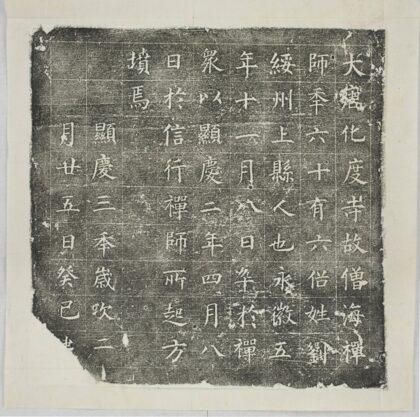 大唐化度寺故僧海禪
師秊六十有六俗姓劉
綏州上縣人也永徽五
年十一月八日卒於禪
衆以顯慶二年四月八
日於信行禪師所起方
墳焉
顯慶三秊歲次二
月廿五日癸巳